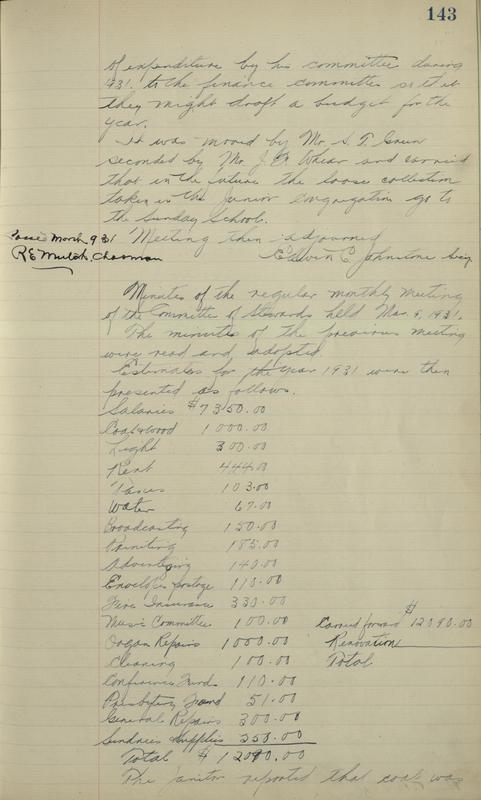 143
of expenditure by his committee during
1931. to the finance committee so that
they might draft a budget for the
year.
It was moved by Mr. S. T. Green
seconded by Mr. J. E. and carried
that in the future the loose collection
taken in the Junior congregation go to
the Sunday School.
Meeting then adjourned
March 9 31
R E Mutch, Chairman
Edwin C Johnstone Secy
Minutes of the regular monthly meeting
of the Committee of Stewards held Mar. 9, 1931.
The minutes of the previous meeting
were read and adopted.
Estimates for the year 1931 were then
presented as follows.
Salaries $7350.00
Coal & wood 1000.00
Light 300.00
Rent 444.00
Taxes 103.00
Water 67.00
Broadcasting 150.00
Printing 185.00
Advertising 140.00
Envelopes postage 110.00
Fire Insurance 330.00
Music Committee 100.00 Carried forward $12090.00
Organ Repairs 1000.00 Renovation
Cleaning 100.00 Total
Conference Fund 110.00
Presbytery Fund 51.00
General Repairs 300.00
Sundries Supplies 250.00
Total $12090.00
The janitor reported that coal was